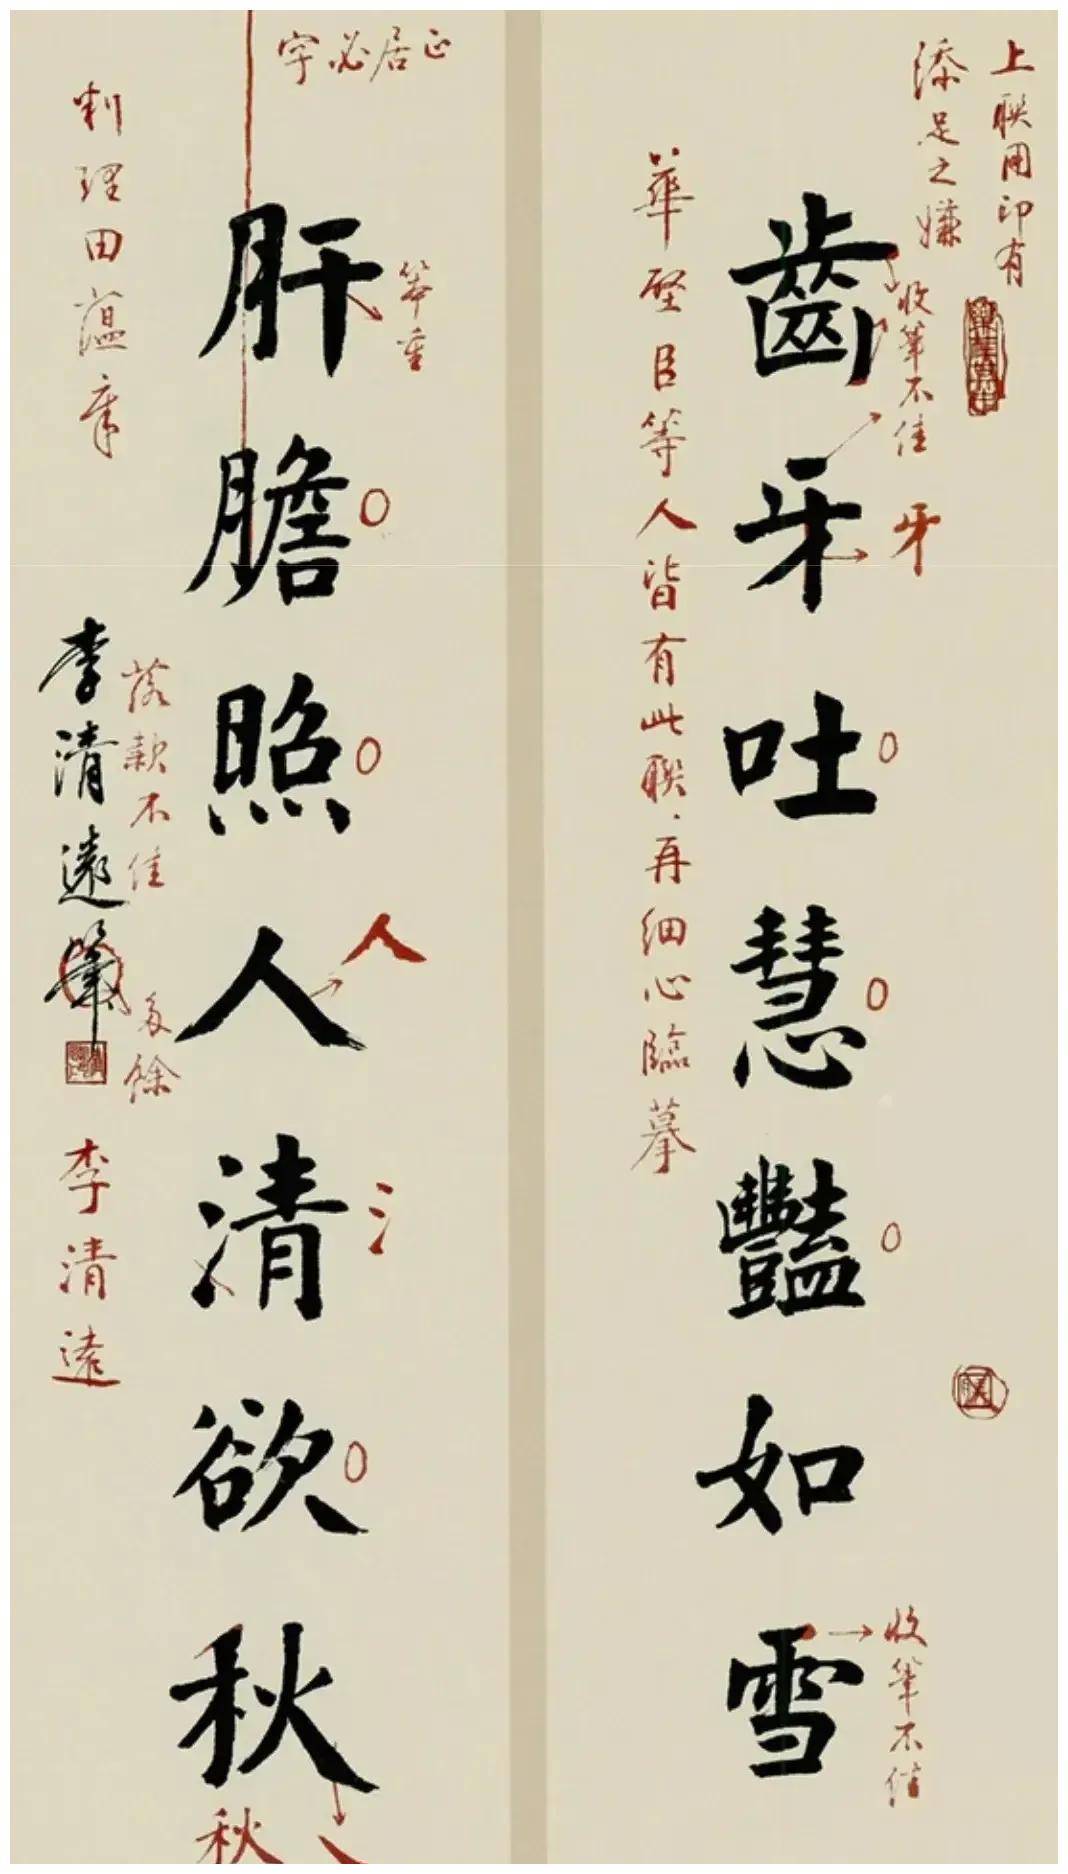 上聯用印有
添足之嫌
收筆不佳
牙
齒牙吐慧豔如雪
收筆不佳
華璧臣等人皆有此聯，再細心臨摹
字必居正
筆重
肝膽照人清欲秋
人
氵
秋
落款不佳
多餘
李清遠筆
李清遠
理田蘊章